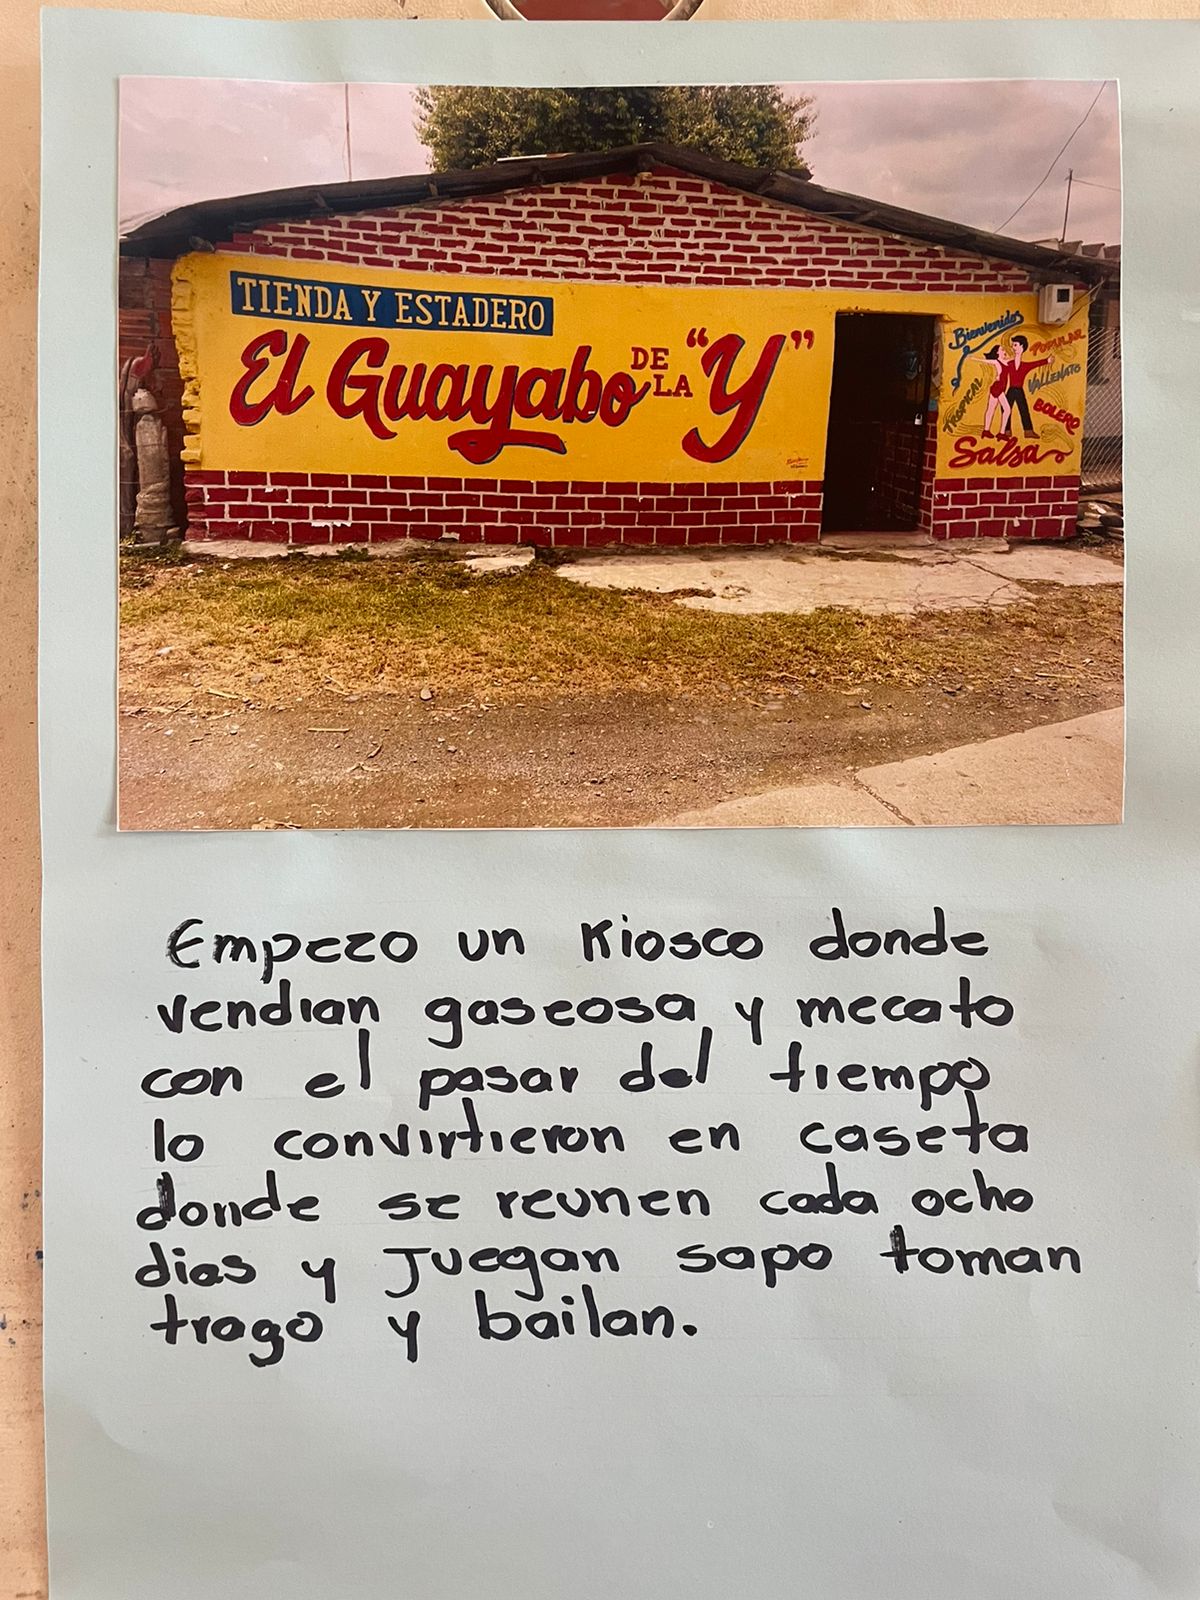 TIENDA Y ESTADERO
El Guayabo DE LA "Y"
Bienvenidos
POPULAR
VALLENATO
TROPICAL
BOLERO
Salsa
Empezo un Kiosco donde
vendian gaseosa y mecato
con el pasar del tiempo,
lo convirtieron en caseta
donde se reunen cada ocho
dias y Juegan sapo toman
trago y bailan.